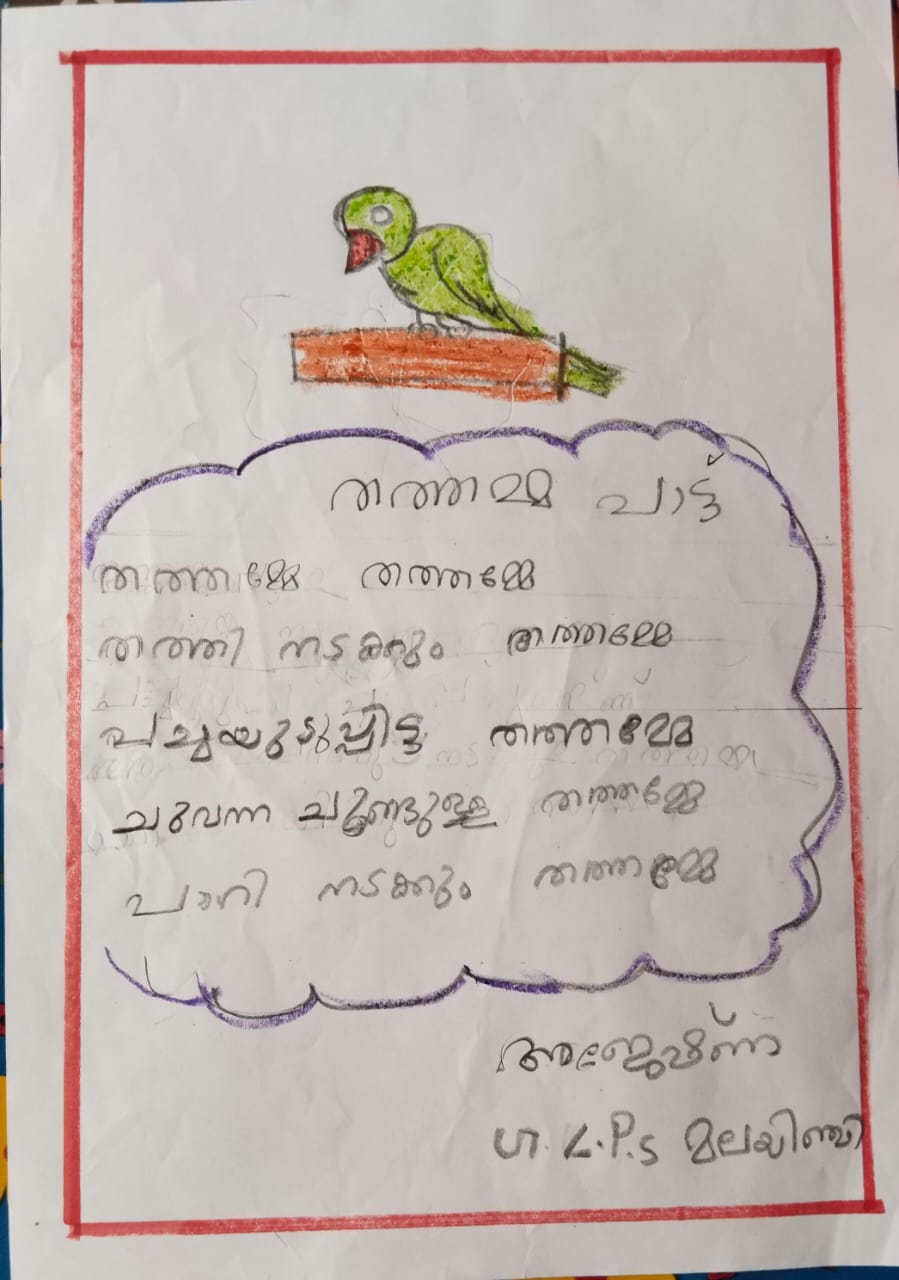 തത്തമ്മ പാട്ട്
തത്തമ്മേ തത്തമ്മേ
തത്തി നടക്കും തത്തമ്മേ
പച്ചയുടുപ്പിട്ട തത്തമ്മേ
ചുവന്ന ചുണ്ടുള്ള തത്തമ്മേ
പാറി നടക്കും തത്തമ്മേ
ഗ. L.P.S മലയിഞ്ചി